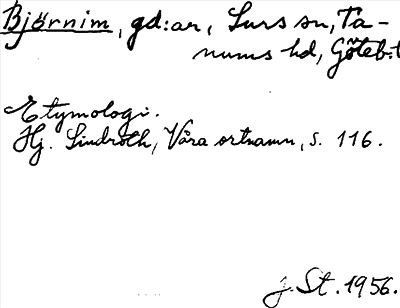 Björnim, gd:ar, Lurs sn, Ta-
nums hd, Göteb.l
Etymologi.
Hj. Lindroth, Våra ortnamn, s. 116.
J. St. 1956.